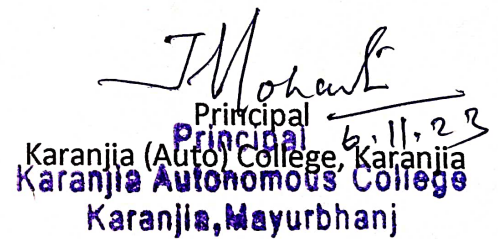 JMohanti
Principal
6.11.23
Principal
Karanjia (Auto) College, Karanjia
Karanjia Autonomous College
Karanjia, Mayurbhanj